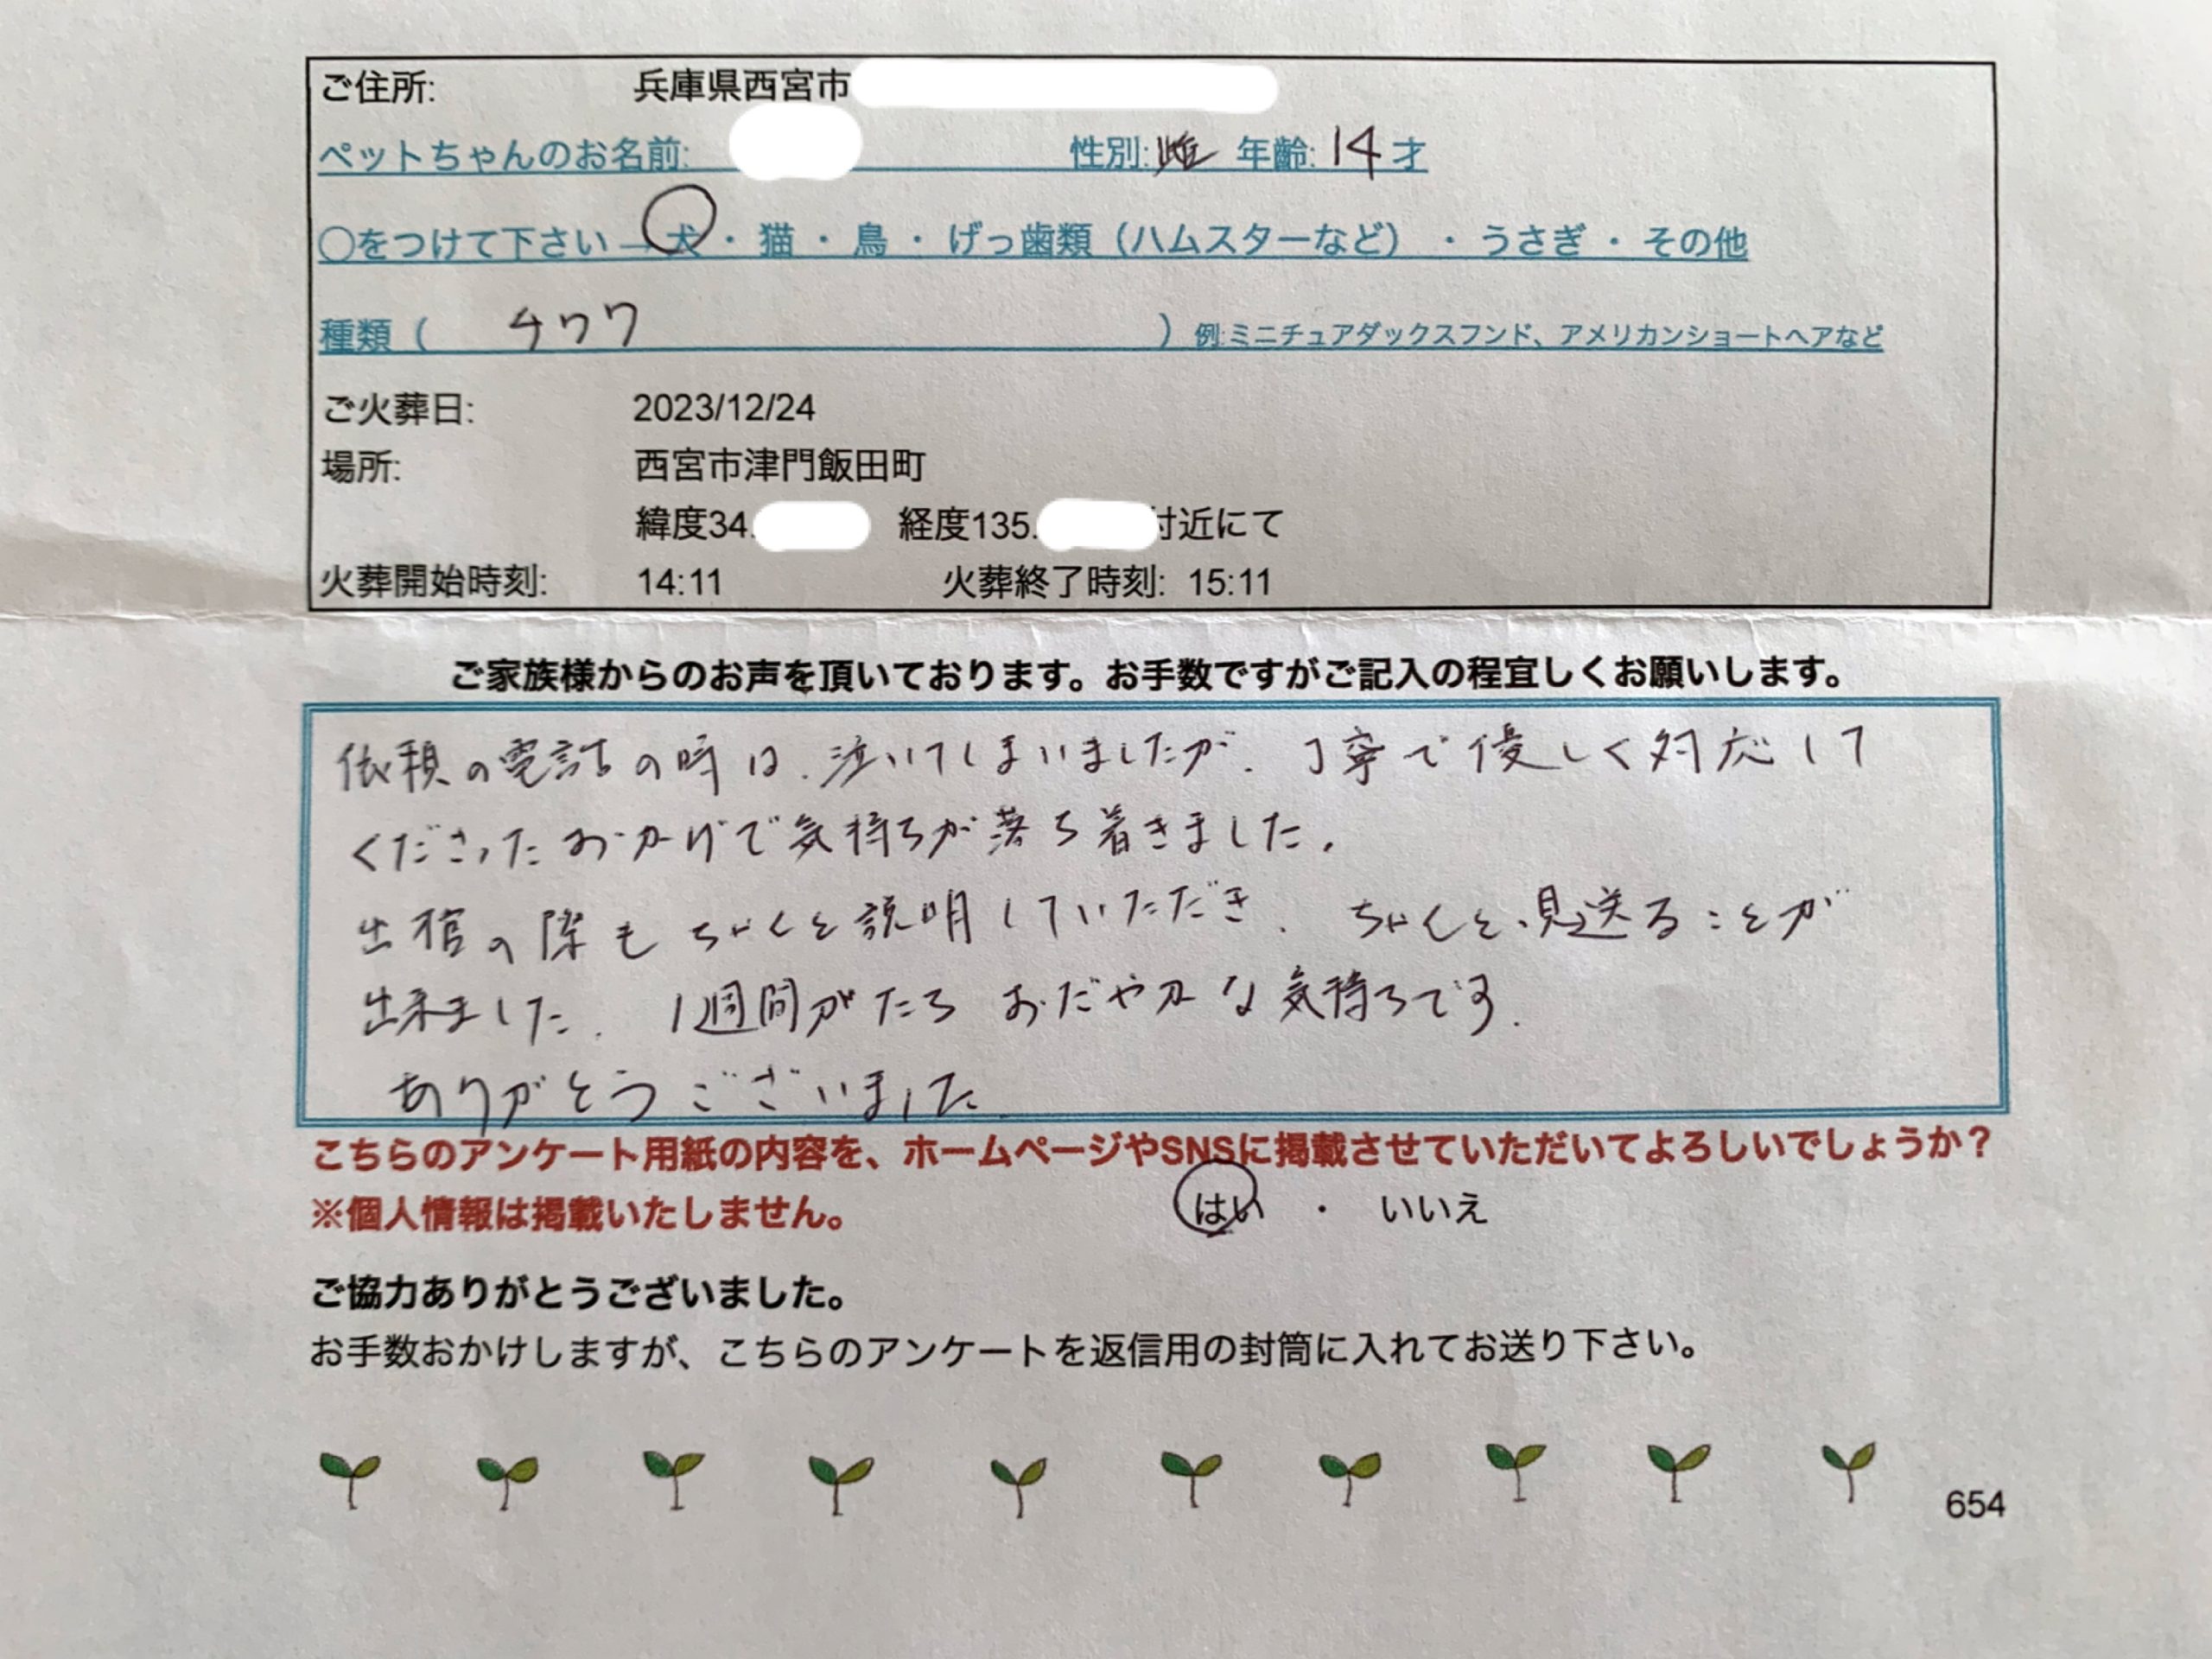 ご住所: 兵庫県西宮市
ペットちゃんのお名前: 性別:雌 年齢:14才
○をつけて下さい→犬・猫・鳥・げっ歯類（ハムスターなど）・うさぎ・その他
種類（ チワワ ）例:ミニチュアダックスフンド、アメリカンショートヘアなど
ご火葬日: 2023/12/24
場所: 西宮市津門飯田町
緯度34. 経度135. 付近にて
火葬開始時刻: 14:11 火葬終了時刻: 15:11
ご家族様からのお声を頂いております。お手数ですがご記入の程宜しくお願いします。
依頼の電話の時は、泣いてしまいましたが、丁寧で優しく対応して
くださったおかげで気持ちが落ち着きました。
出棺の際もちゃんと説明していただき、ちゃんと、見送ることが
出来ました。1週間がたちおだやかな気持ちです。
ありがとうございました。
こちらのアンケート用紙の内容を、ホームページやSNSに掲載させていただいてよろしいでしょうか？
※個人情報は掲載いたしません。 はい ・ いいえ
ご協力ありがとうございました。
お手数おかけしますが、こちらのアンケートを返信用の封筒に入れてお送り下さい。
654